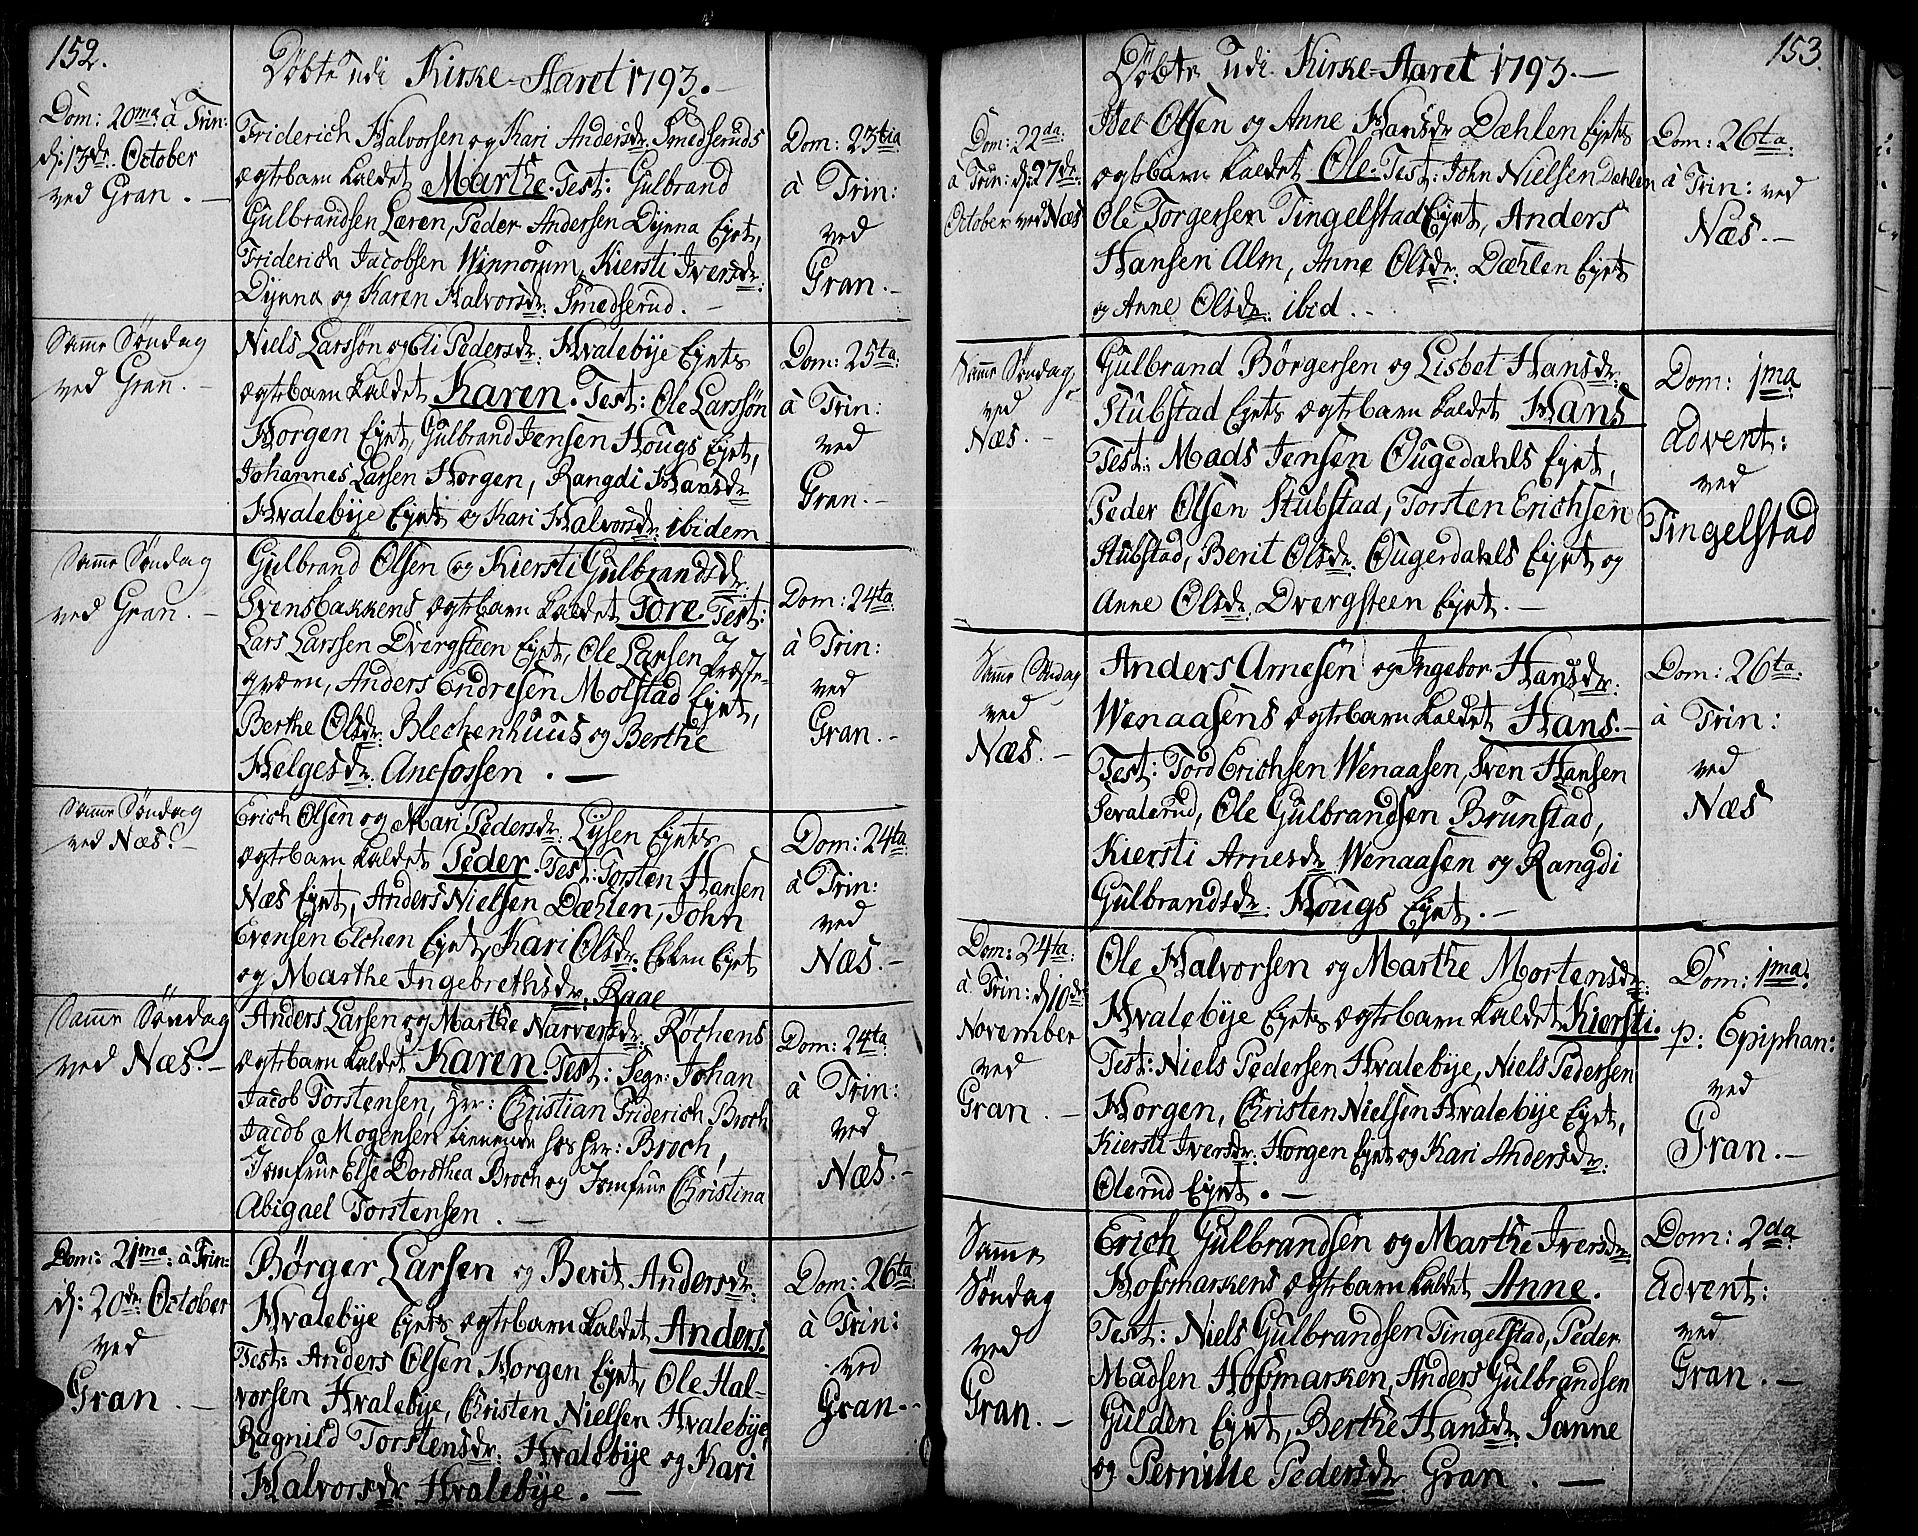 152.
Döbte udi Kirke-Aaret 1793.
Dom: 20ma à Trin:
d: 13de October
ved Gran.
Friderich Halvorsen og Kari Andersdr. Smedseruds
ægtebarn kaldet Marthe. Test: Gulbrand
Gulbrandsen Læren, Peder Andersen Dynna Eyet,
Friderich Jacobsen Winnorum, Kiersti Iversdr:
Dynna og Karen Halvorsdr: Smedserud.
Dom: 23tia
à Trin:
ved
Gran.
Samme Söndag
ved Gran.
Niels Larssön og Eli Pedersdr: Hvalebye Eyets
ægtebarn kaldet Karen. Test: Ole Larssön
Horgen Eyet, Gulbrand Jensen Hougs Eyet,
Johannes Larsen Horgen, Rangdi Hansdr
Hvalebye Eyet og Kari Halvorsdr: ibidem
Dom: 25ta:
à Trin:
ved
Gran.
Samme Söndag
ved Gran.
Gulbrand Olsen og Kiersti Gulbrandsdr.
Svensbakkens ægtebarn kaldet Tore. Test:
Lars Larssen Dvergsteen Eyet, Ole Larsen Præste-
qværn, Anders Endresen Molstad Eyet,
Berthe Olsdr: Blechenhuus og Berthe
Helgesdr: Anefossen.
Dom: 24ta
à Trin:
ved
Gran.
Samme Söndag
ved Næs.
Erich Olsen og Mari Pedersdr: Lysen Eyets
ægtebarn kaldet Peder. Test: Torsten Hansen
Næs Eyet, Anders Nielsen Dæhlen, John
Evensen Elchen Eyet, Kari Olsdr: Ekken Eyet
og Marthe Ingebrethsdr. Raae
Dom: 24ta
à Trin:
ved
Næs.
Samme Söndag
ved Næs.
Anders Larsen og Marthe Narversdr: Röchens
ægtebarn kaldet Karen. Test: Segr: Johan
Jacob Torstensen, Hr: Christian Friderich Broch
Jacob Mogensen tienende hos Hr: Broch,
Jomfrue Else Dorothea Broch og Jomfrue Christina
Abigael Torstensen.
Dom: 24ta
à Trin:
ved
Næs.
Dom: 21ma: à Trin:
d: 20de October
ved
Gran.
Börger Larsen og Berit Andersdr:
Hvalebye Eyets ægtebarn kaldet Anders.
Test: Anders Olsen Horgen Eyet, Ole Hal-
vorsen Hvalebye, Christen Nielsen Hvalebye,
Ragnild Torstensdr: Hvalebye og Kari
Halvorsdr Hvalebye.
Dom: 26ta:
à Trin:
ved
Gran.
153.
Döbte udi Kirke-Aaret 1793.
Dom: 22da:
à Trin: d: 27de
October ved Næs
Ibet Olsen og Anne Hansdr Dæhlen Eyets
ægtebarn kaldet Ole. Test: John Nielsen Dæhlen
Ole Torgersen Tingelstad Eyet, Anders
Hansen Alm, Anne Olsdr: Dæhlen Eyet
og Anne Olsdr: ibid.
Dom: 26ta:
à Trin: ved
Næs.
Samme Söndag
ved
Næs.
Gulbrand Börgersen og Lisbet Hansdr.
Stubstad Eyets ægtebarn kaldet Hans
Test: Mads Jensen Ougedahls Eyet,
Peder Olsen Stubstad, Torsten Erichsen
Stubstad, Berit Olsdr: Ougerdahls Eyet og
Anne Olsdr: Dvergsteen Eyet.
Dom: 1ma
Advent:
ved
Tingelstad
Samme Söndag
ved
Næs.
Anders Arnesen og Ingebor Hansdr:
Wenaasens ægtebarn kaldet Hans.
Test: Tord Erichsen Wenaasen, Sven Hansen
Sevalerud, Ole Gulbrandsen Brunstad,
Kiersti Arnesdr Wenaasen og Rangdi
Gulbrandsdr: Hougs Eyet.
Dom: 26ta:
à Trin:
ved
Næs
Dom: 24ta:
à Trin: d: 10de
November
ved
Gran.
Ole Halvorsen og Marthe Mortensdr:
Hvalebye Eyets ægtebarn kaldet Kiersti.
Test: Niels Pedersen Hvalebye, Niels Pedersen
Horgen, Christen Nielsen Hvalebye Eyet,
Kiersti Iversdr: Horgen Eyet og Kari Andersdr:
Olerud Eyet.
Dom: 1ma:
p: Epiphan:
ved
Gran.
Samme
Söndag
ved
Gran.
Erich Gulbrandsen og Marthe Iversdr:
Hofsmarkens ægtebarn kaldet Anne.
Test: Niels Gulbrandsen Tingelstad, Peder
Madsen Hofsmarken, Anders Gulbrandsen
Gulden Eyet, Berthe Hansdr: Sanne
og Pernille Pedersdr Gran.
Dom: 2da
Advent:
ved
Gran.